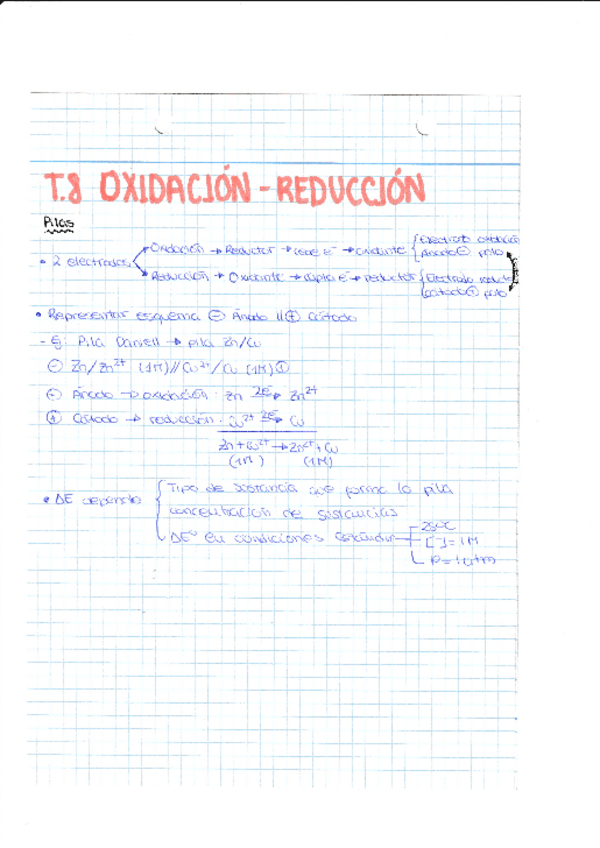 T.8 OXIDACIÓN - REDUCCIÓN
Pilas
• 2 electrodos
Oxidación → Reductor → cede e⁻ → oxidante { Electrodo oxidación
Ánodo ⊖ polo
Reducción → Oxidante → capta e⁻ → reductor { Electrodo
Cátodo ⊕ polo
• Representar esquema ⊖ Ánodo // ⊕ Cátodo
- Ej: Pila Daniell → pila Zn/Cu
⊖ Zn/Zn²⁺ (1M)//Cu²⁺/Cu (1M) ⊕
⊖ Ánodo → oxidación: Zn 2e⁻→ Zn²⁺
⊕ Cátodo → reducción: Cu²⁺ 2e⁻→ Cu
Zn + Cu²⁺ → Zn²⁺ + Cu
(1M) (1M)
• ΔE depende
Tipo de que forma la pila
concentración de
ΔE° en condiciones estándar
25ºC
[ ] = 1M
P = 1 atm